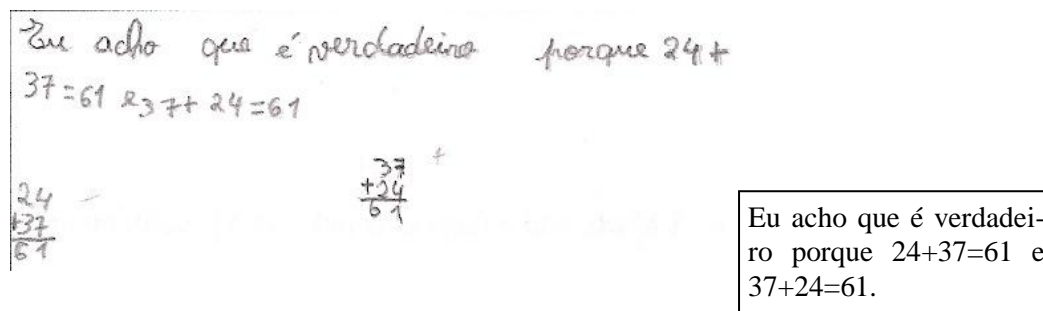 Eu acho que é verdadeiro porque 24+
37=61 e 37+24=61
24
+37
61
37
+24
61
Eu acho que é verdadei-
ro porque 24+37=61 e
37+24=61.